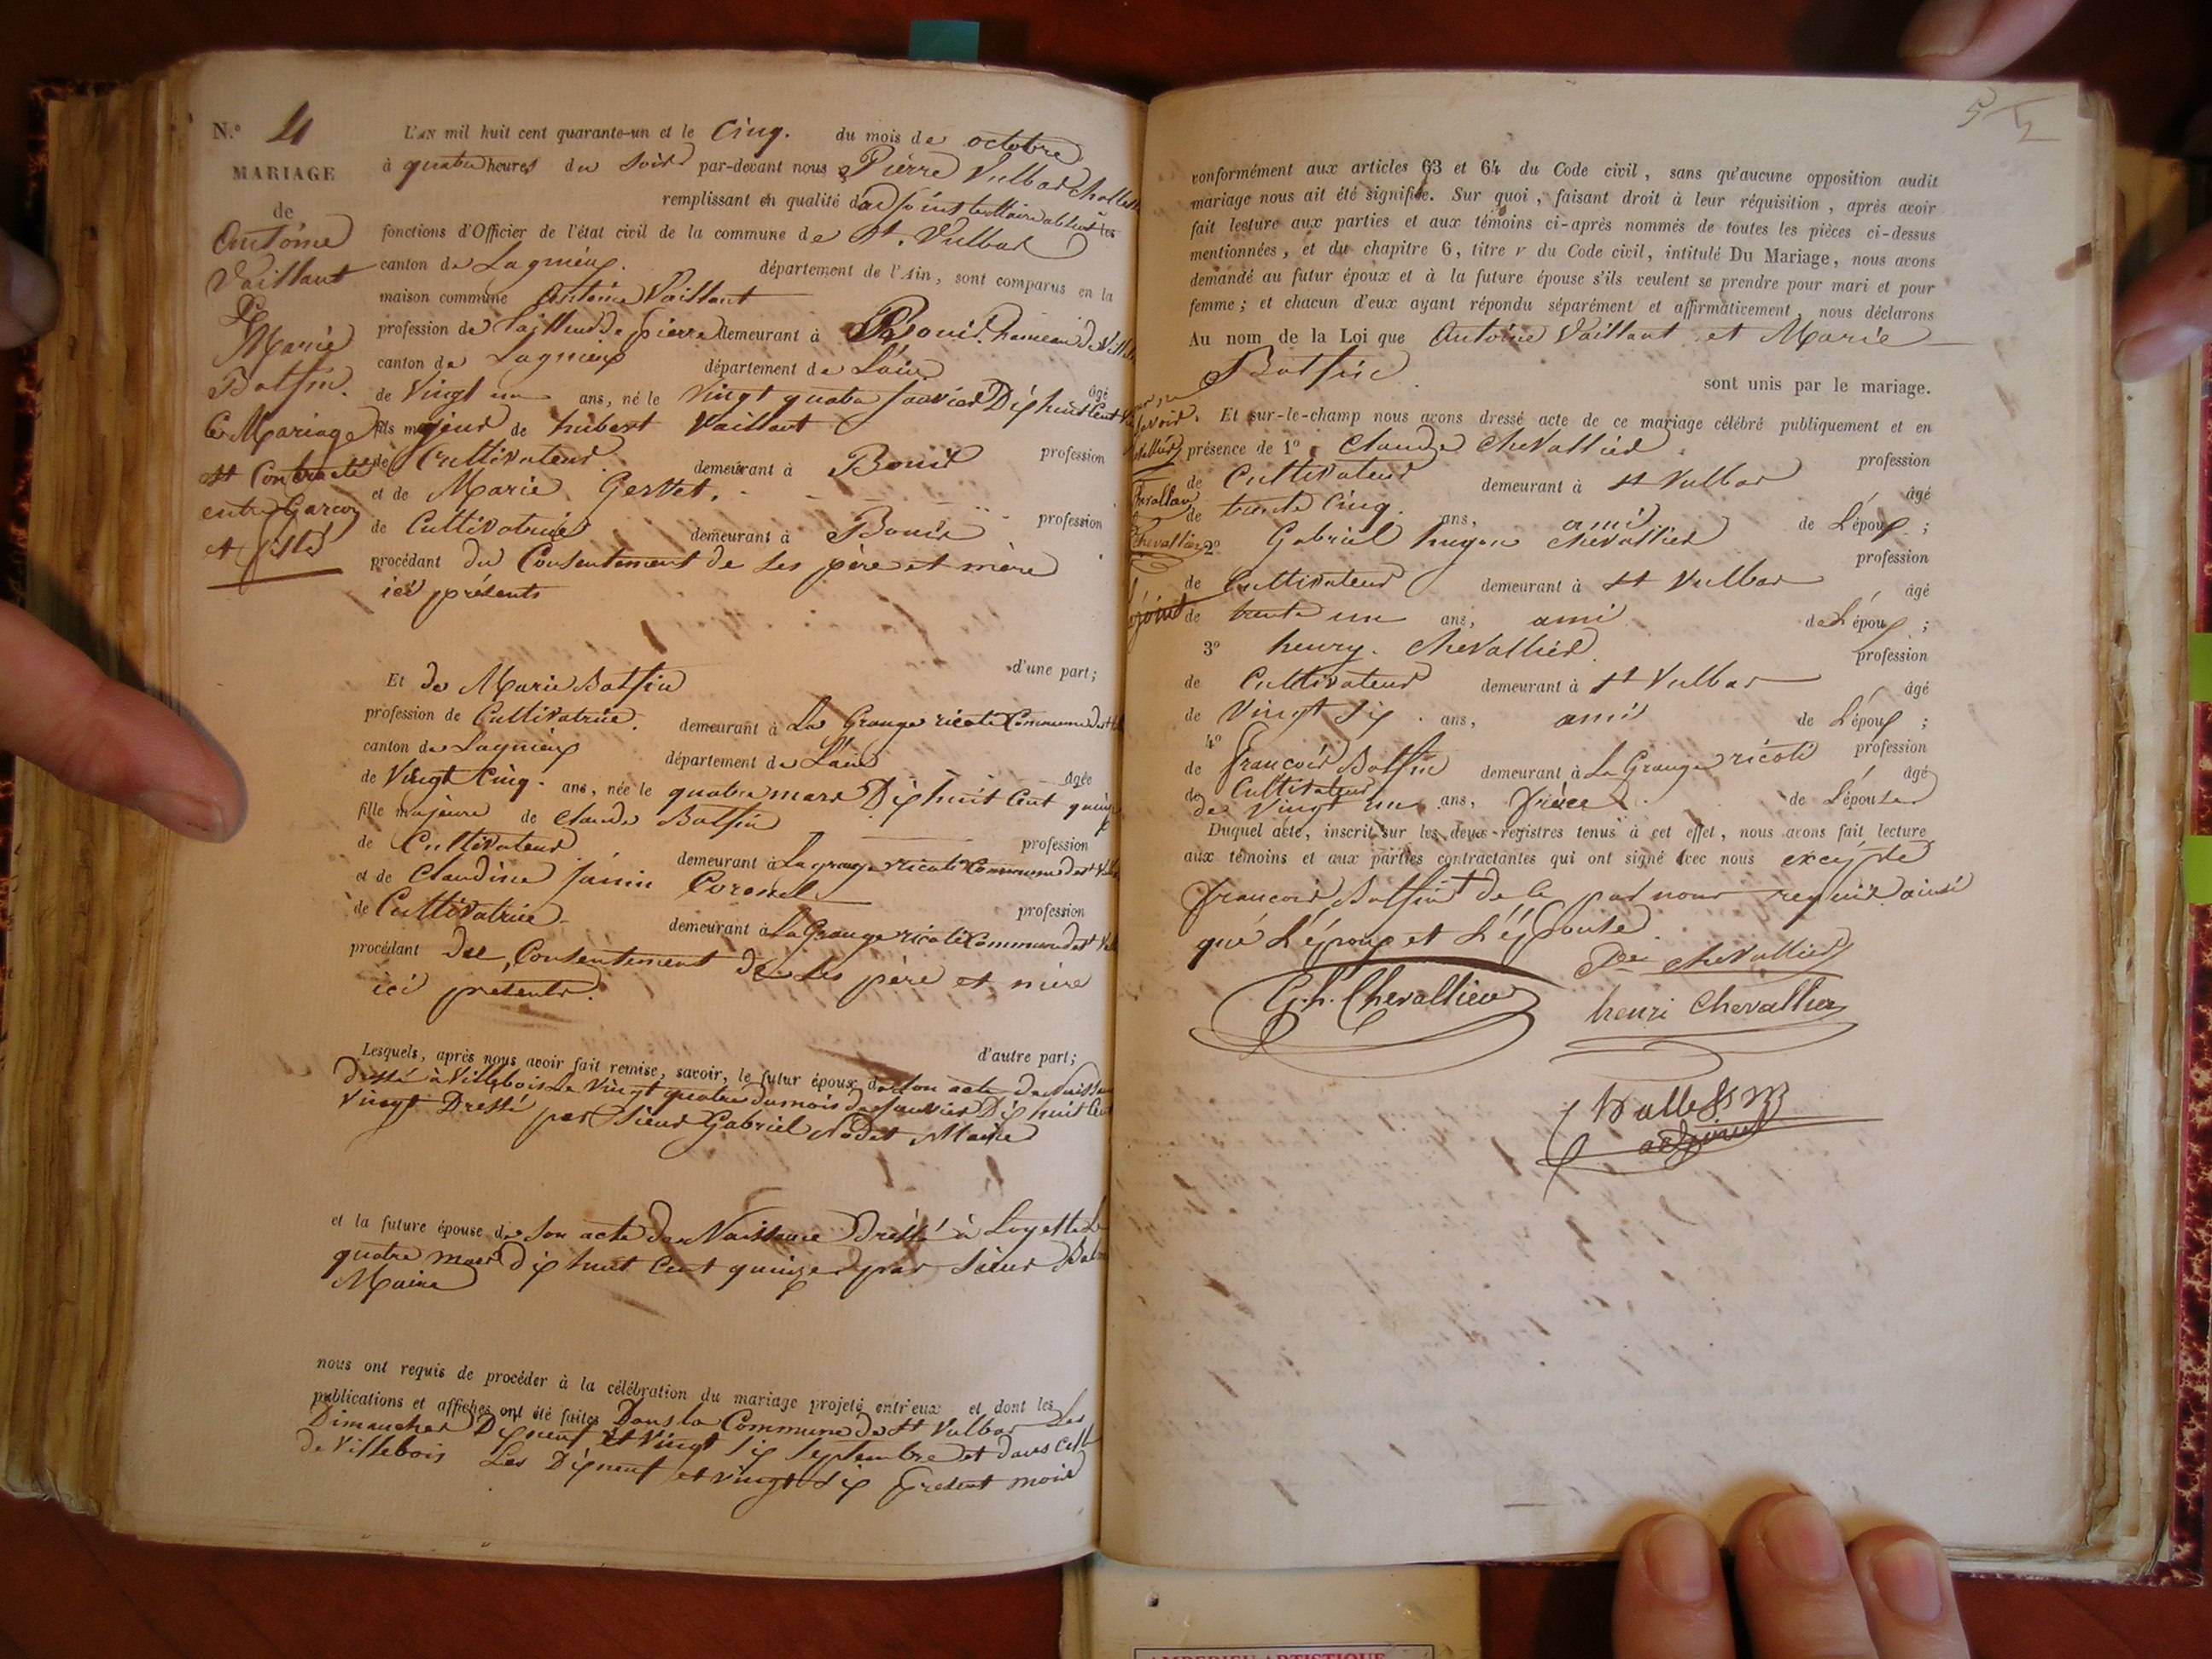 N.º 4
MARIAGE
de
Antoine
Vaillant
Et
Marie
Batsin.
Ce Mariage
est Contracté
entre Garcon
et fille
L'AN mil huit cent quarante-un et le Cinq. du mois de octobre
à quatre heures du soir par-devant nous Pierre Vulbas
remplissant en qualité d'adjoint les
fonctions d'Officier de l'état civil de la commune de St. Vulbas
canton de Lagnieux. département de l'Ain, sont comparus en la
maison commune Antoine Vaillant
profession de Tailleur de pierre demeurant à Bouis. hameau de
canton de Lagnieux département de L'ain
âgé
de Vingt un ans, né le Vingt quatre Janvier Dix huit Cent
fils majeur de hubert Vaillant
profession
de Cultivateur demeurant à Bouis
et de Marie Gervet.
profession
de Cultivatrice demeurant à Bouis
procédant du Consentement de Ses père et mère
ici présents
d'une part;
Et de Marie Batsin
profession de Cultivatrice. demeurant à La Grange ricoti Commune de st
canton de Lagnieux département de L'ain
âgée
de Vingt Cinq. ans, née le quatre mars Dix huit Cent quinze
fille majeure de Claude Batsin
profession
de Cultivateur demeurant à La grange ricoti Commune de st
et de Claudine Janin Coronel
profession
de Cultivatrice demeurant à La Grange ricoti Commune de st
procédant du Consentement de Ses père et mère
ici présents.
d'autre part;
Lesquels, après nous avoir fait remise, savoir, le futur époux de Son acte de
dressé à Villebois Le Vingt quatre du mois de Janvier Dix huit Cent
Vingt Dressé par Sieur Gabriel Nodet Maire
et la future épouse de Son acte de Naissance Dressé à Loyette Le
quatre mars dix huit Cent quinze par Sieur
Maire
nous ont requis de procéder à la célébration du mariage projeté entr'eux et dont les
publications et affiches ont été faites Dans la Commune de St Vulbas Les
Dimanches Dix neuf et Vingt Six Septembre et dans Celle
de Villebois Les Dix neuf et vingt Six présent mois
52
conformément aux articles 63 et 64 du Code civil, sans qu'aucune opposition audit
mariage nous ait été signifiée. Sur quoi, faisant droit à leur réquisition, après avoir
fait lecture aux parties et aux témoins ci-après nommés de toutes les pièces ci-dessus
mentionnées, et du chapitre 6, titre v du Code civil, intitulé Du Mariage, nous avons
demandé au futur époux et à la future épouse s'ils veulent se prendre pour mari et pour
femme; et chacun d'eux ayant répondu séparément et affirmativement, nous déclarons
Au nom de la Loi que Antoine Vaillant et Marie
Batsin
sont unis par le mariage.
Et sur-le-champ nous avons dressé acte de ce mariage célébré publiquement et en
présence de 1º Claude Chevallier.
profession
de Cultivateur demeurant à St Vulbas
âgé
de trente Cinq. ans, ami de L'époux;
2º Gabriel hugon Chevallier
profession
de Cultivateur demeurant à St Vulbas
âgé
de trente un ans, ami de L'époux;
3º henry. Chevallier.
profession
de Cultivateur demeurant à St Vulbas
âgé
de Vingt Six. ans, ami de L'époux;
4º François Batsin demeurant à La Grange ricoti profession
de Cultivateur âgé
de Vingt un ans, frère. de L'épouse
Duquel acte, inscrit sur les deux registres tenus à cet effet, nous avons fait lecture
aux témoins et aux parties contractantes qui ont signé avec nous excepté
François Batsin de ce par nous requis ainsi
que L'époux et L'épouse.
Chevallier
G. h. Chevallier
henri Chevallier
adjoint
AMBERIEU ARTISTIQUE